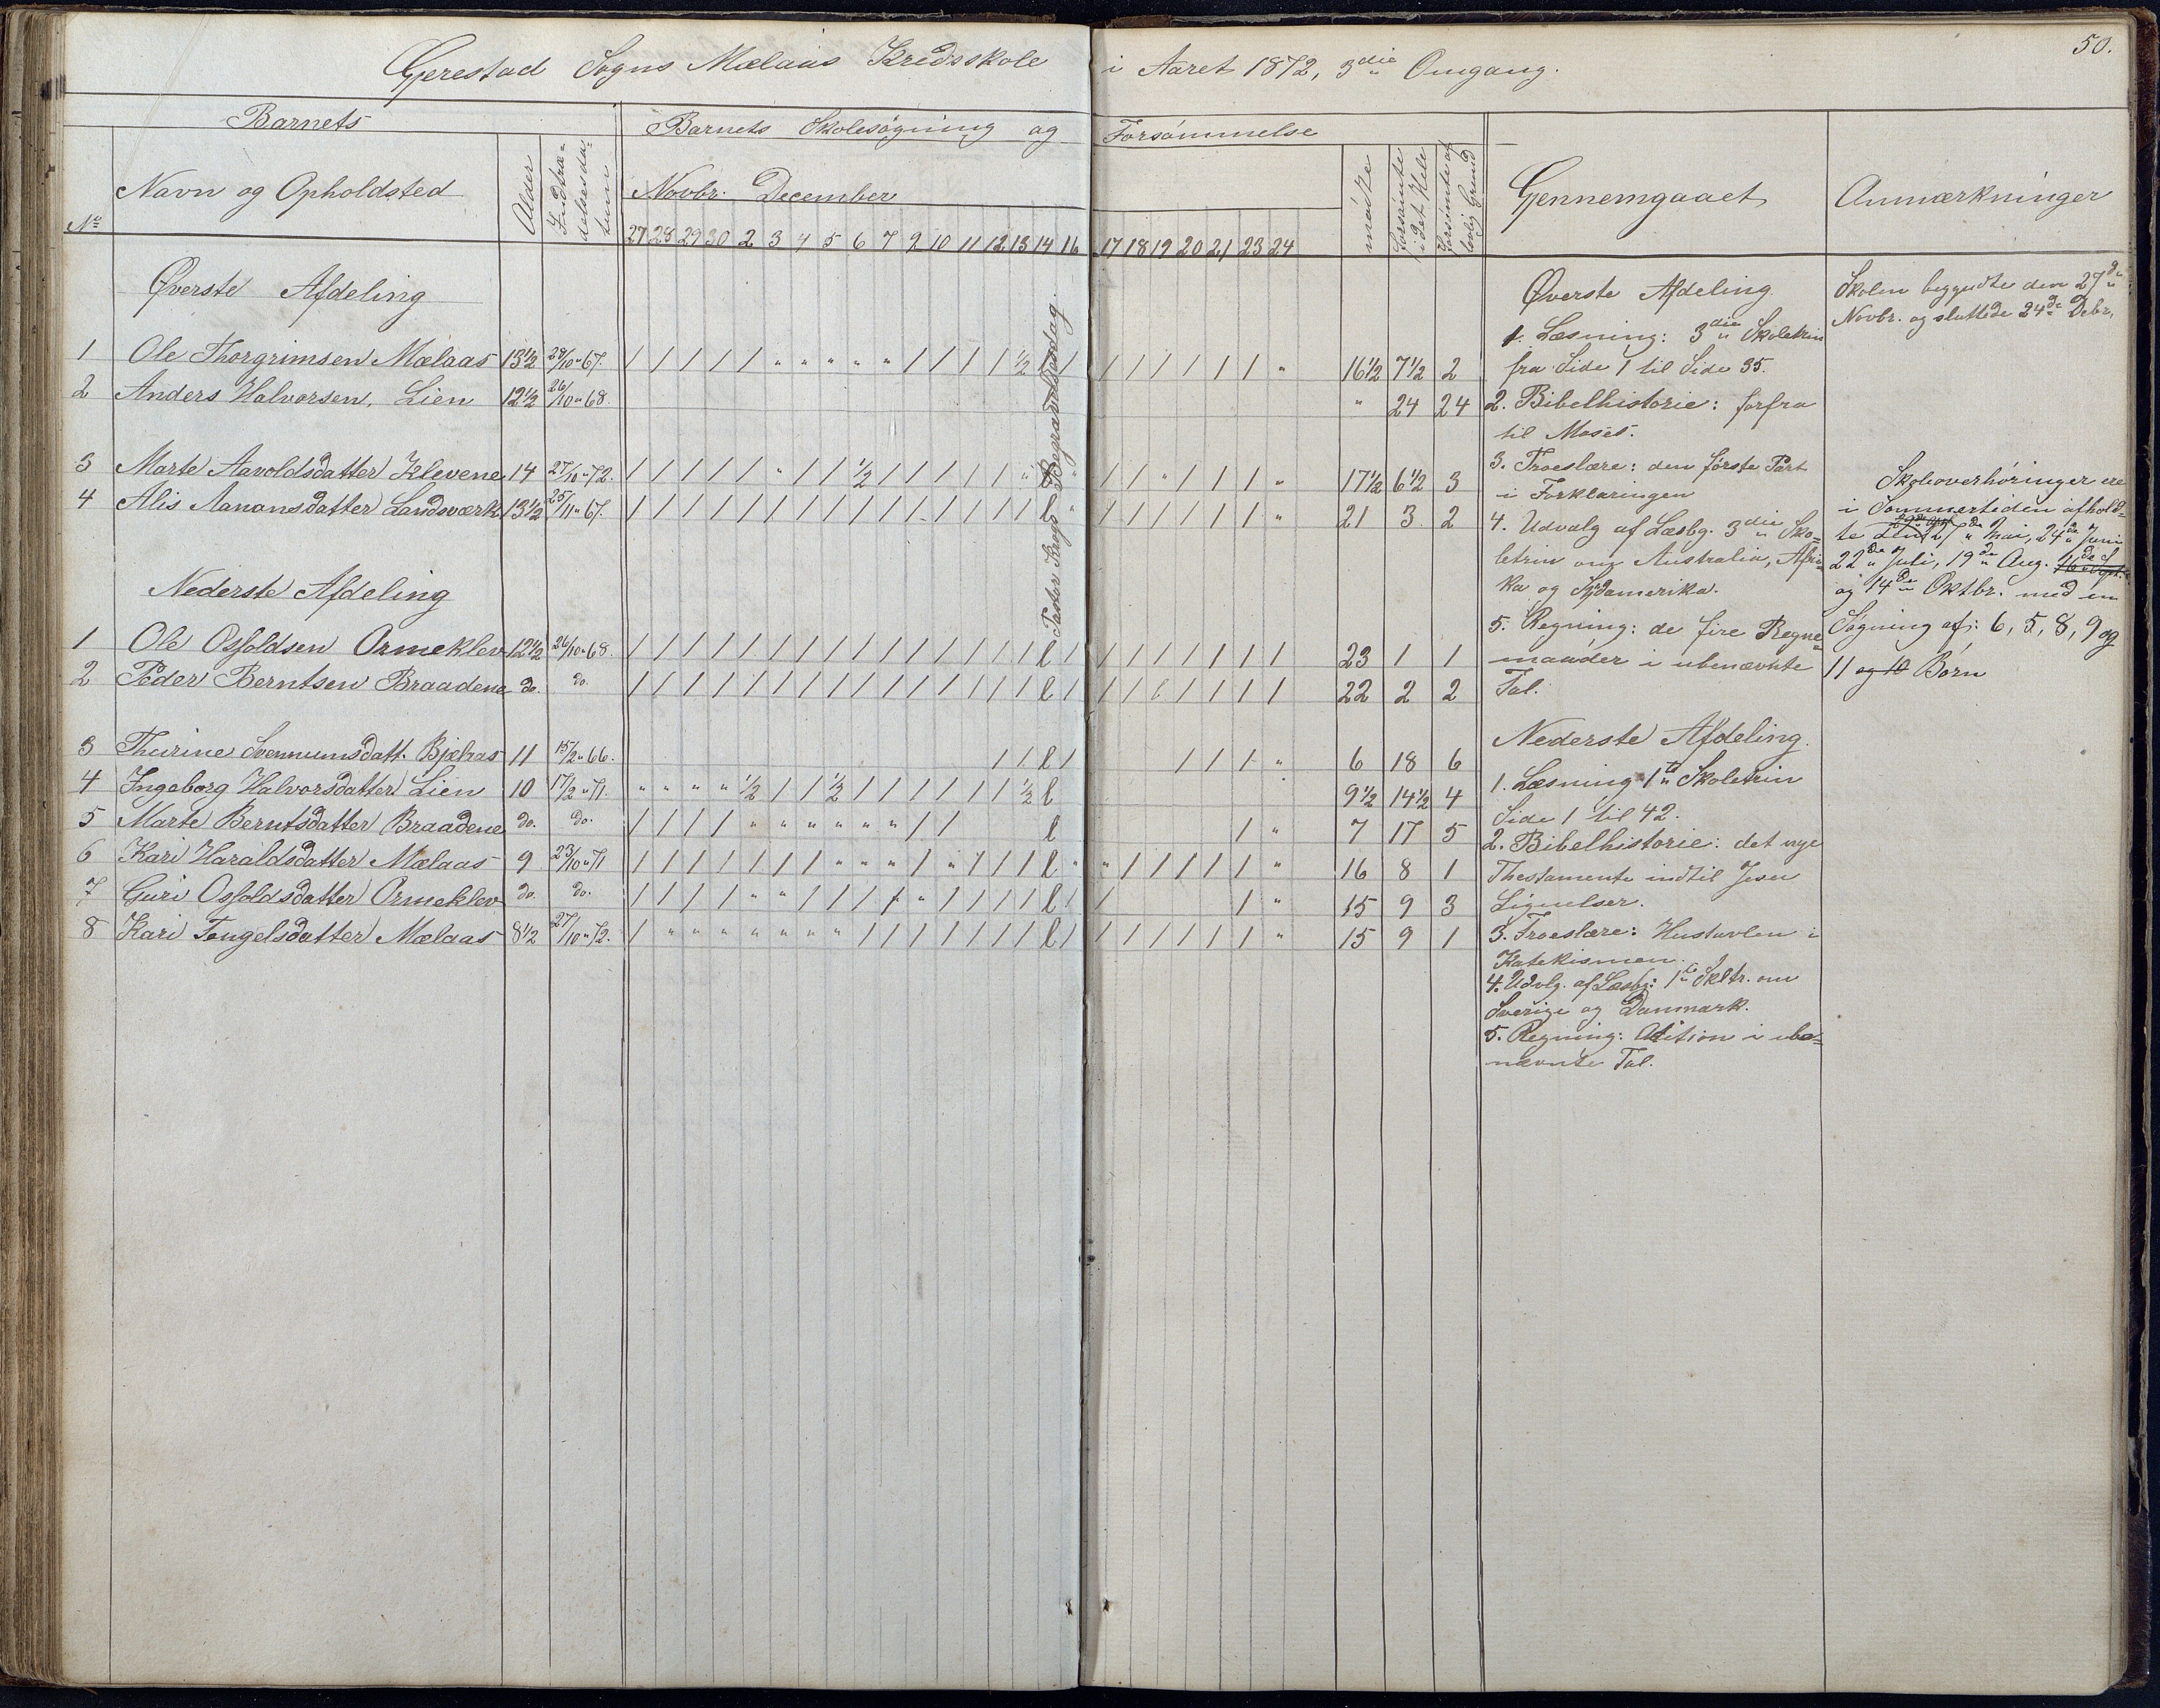 50.
Gjerestad Sogns Mælaas Kredsskole i Aaret 1872, 3die Omgang.
Barnets
Barnets Skolesøgning og Forsømmelse
No
Navn og Opholdsted
Alder
Indtræ-
delsesda-
tum
Novbr. December
27 28 29 30 2 3 4 5 6 7 9 10 11 12 13 14 16 17 18 19 20 21 23 24
mødte
forsømte
i det Hele
forsømte af
lovlig Grund
Gjennemgaaet
Anmærkninger
Øverste Afdeling
1 Ole Thorgrimsen Mælaas 13½ 28/10 " 67. / / / / / " " " " " / / / / ½ / / / / / / / " 16½ 7½ 2
2 Anders Halvorsen, Lien 12½ 26/10 " 68. " 24 24
3 Marte Aavoldsdatter Klevene 14 27/10 " 72. / / / / / " / / ½ / / / / / " " / / " / / / " 17½ 6½ 3
4 Alis Aanonsdatter Landsværk 13½ 25/11 " 67. / / / / / / / / / / / / / / / " / / / / / / " 21 3 2
Pastor Krogs Begravelsesdag.
Nederste Afdeling
1 Ole Osfoldsen Ormeklev 12½ 26/10 " 68. / / / / / / / / / / / / / / / l / / / / / / / / 23 1 1
2 Peder Berntsen Braadene do. do. / / / / / / / / / / / / / / / l / / / l / / / / 22 2 2
3 Thurine Svennumsdatt. Bjelaas 11 15/2 " 66. / / l / / / / " 6 18 6
4 Ingeborg Halvorsdatter Lien 10 17/2 " 71. " " " " ½ / / ½ / / / / / / ½ l 9½ 14½ 4
5 Marte Berntsdatter Braadene do. do. / / / / " " " " " " / / l / " 7 17 5
6 Kari Haraldsdatter Mælaas 9 23/10 " 71 / / / / / / / " " " / " / / / l " " / / / / / " 16 8 1
7 Guri Osfoldsdatter Ormeklev do. do. / / / / " " / / / / " / / / / l / / / " 15 9 3
8 Kari Tengelsdatter Mælaas 8½ 27/10 " 72. / " " " " " " " / / / / / / / l / / / / / / / " 15 9 1
Øverste Afdeling
1. Læsning: 3die Skoletrin
fra Side 1 til Side 35.
2. Bibelhistorie: forfra
til Moses.
3. Troeslære: den første Part
i Forklaringen
4. Udvalg af Læsbg. 3die Sko-
letrin om Australia, Afri-
ka og Sydamerika.
5. Regning: de fire Regne-
maader i ubenævnte
Tal.
Nederste Afdeling.
1. Læsning 1te Skoletrin
Side 1 til 42.
2. Bibelhistorie: det nye
Thestamente indtil Jesu
Lignelser.
3. Troeslære: Hustavlen i
Katekismen.
4. Udvlg. af Læsbg: 1te Skltr. om
Sverige og Danmark.
5. Regning: Adition i ube-
nævnte Tal.
Skolen begyndte den 27de
Novbr. og sluttede 24de Debr.
Skoleoverhøringer ere
i Sommertiden afhold-
te 27de Mai, 24de Juni
22de Juli, 19de Aug. 16de Spt.
og 14de Oktbr. med en
Søgning af: 6, 5, 8, 9 og
11 og 10 Børn